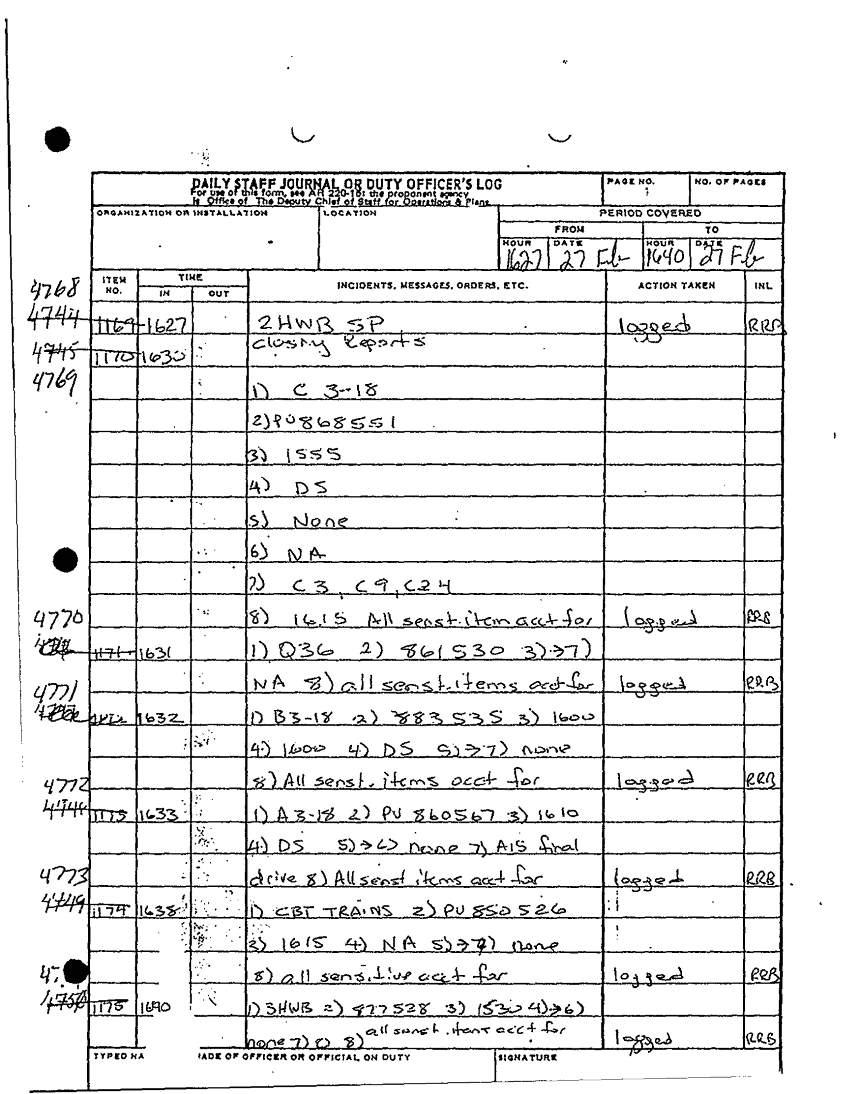 DAILY STAFF JOURNAL OR DUTY OFFICER'S LOG
For use of this form, see AR 220-15; the proponent agency
is Office of The Deputy Chief of Staff for Operations & Plans
PAGE NO.
NO. OF PAGES
ORGANIZATION OR INSTALLATION
LOCATION
PERIOD COVERED
FROM
TO
HOUR DATE HOUR DATE
1627 27 Feb 1640 27 Feb
ITEM NO.
TIME
IN OUT
INCIDENTS, MESSAGES, ORDERS, ETC.
ACTION TAKEN
INL
4768
4744 1169 1627 2HWB SP logged RRB
4745 1170 1630 Closing Reports
4769
1) C 3-18
2) PU868551
3) 1555
4) DS
5) None
6) NA
7) C3, C9, C24
4770 8) 1615 All senst. item acct for logged RRB
1171 1631 1) Q36 2) 861530 3)→7)
4771 NA 8) all senst. items acct for logged RRB
1632 1) B3-18 2) 883535 3) 1600
4) 1600 4) DS 5)→7) none
4772 8) All senst. items acct for logged RRB
1173 1633 1) A3-18 2) PU 860567 3) 1610
4) DS 5)→6) none 7) A15 final
4773 drive 8) All senst items acct for logged RRB
4749 1174 1638 1) CBT TRAINS 2) PU 850526
3) 1615 4) NA 5)→7) none
47 8) all sensitive acct for logged RRB
4750 1175 1640 1) 3HWB 2) 877528 3) 1530 4)→6)
none 7) 0 8) all senst. items acct for logged RRB
TYPED NA ADE OF OFFICER OR OFFICIAL ON DUTY
SIGNATURE